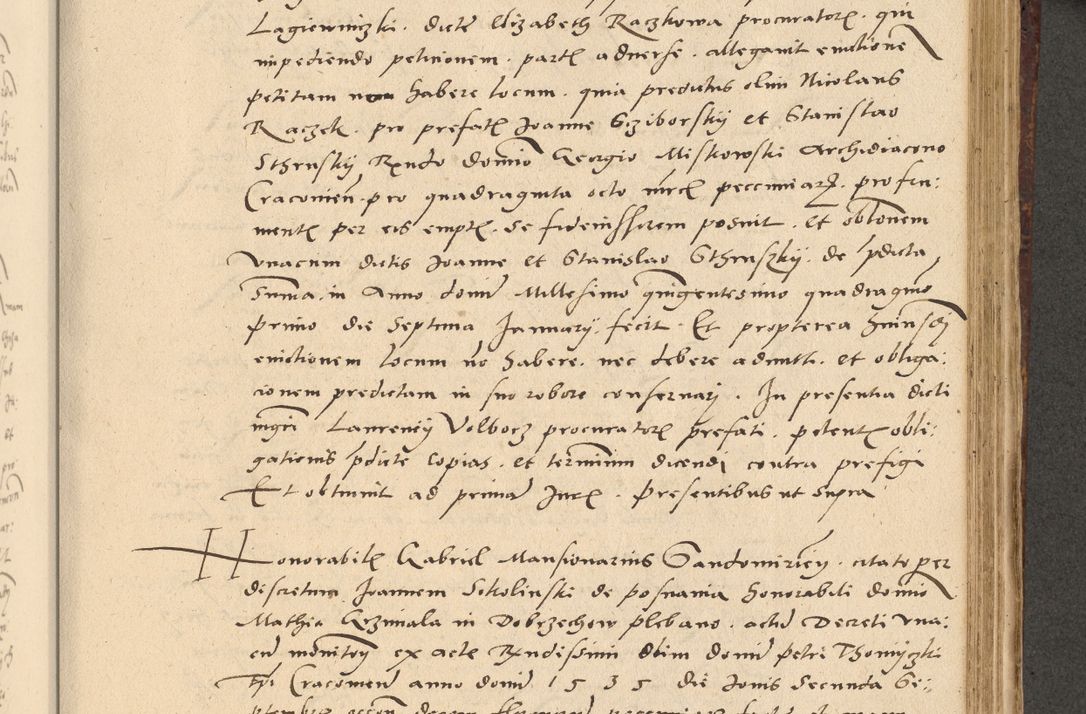 Lagiewniczki . dicte Elizabeth Raczkowa procurator . qui
impediendo petitionem . part adverse . allegavit evictione
petitam non habere locum . quia predictus olim Nicolaus
Raczek . pro prefat Joanne Gziborskij et Stanislao
Sthruskij Rndo domino Georgio Miskowski Archidiacono
Cracovien . pro quadraginta octo mrc pecuniar . pro fru:
ment per eis empt . se fideiussorem posuit . Et oblonem
unacum dictis Joanne et Stanislao Sthruszkij . de pdicta
Summa . in Anno domi Millesimo quingentesimo quadragmo
primo die Septima Januarij . fecit . Et propterea huiusmodi
evictionem locum no habere . nec debere admitt . et obliga:
cionem predictam in suo robore conservarj . In presentia dicti
mgri Laurencij Volborz procurator prefati . petent obli:
gationis pdicte copias . et terminum dicendi contra prefigi
Et obtinuit ad prima Jur . Presentibus ut supra
Honorabil Gabriel Mansionarius Sandomirien . citato per
discretum Joannem Sokolinski de posnania honorabili domino
Mathia Grzimala in Dobrzechow plebano . acto Decreti una:
cu monitorij ex act Rndissimi olim domi Petri Thomyczki
Epi Cracovien anno domi 1535 die Jovis Secunda Se: